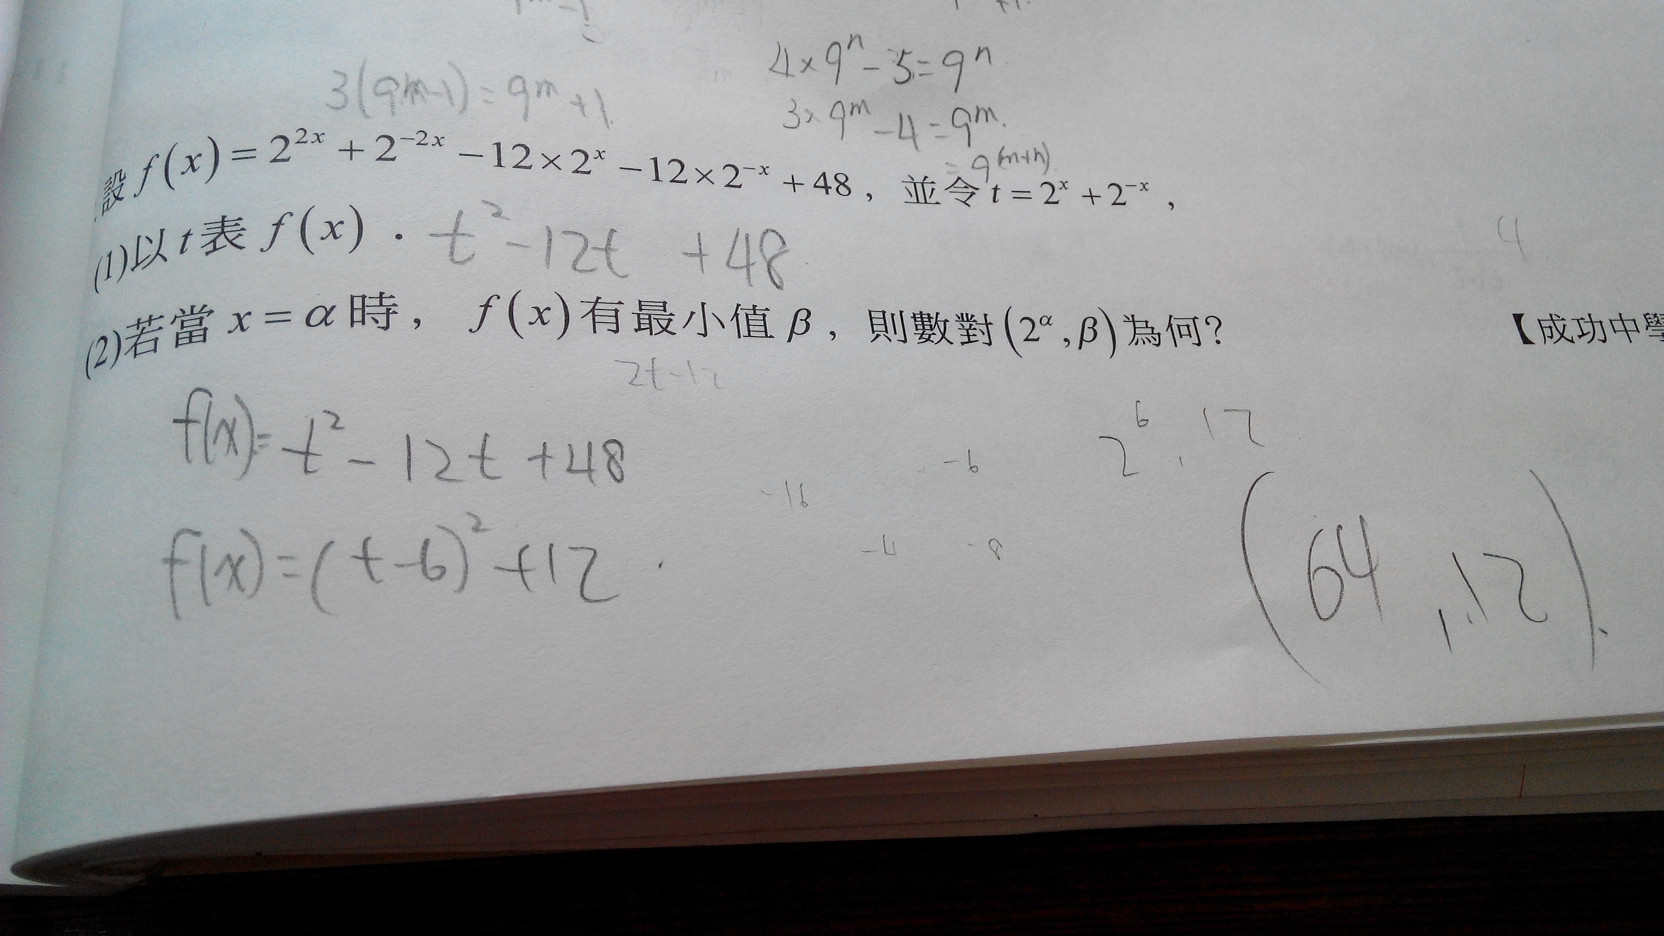 4×9ⁿ-5=9ⁿ
3(9ᵐ-1)=9ᵐ+1
3×9ᵐ-4=9ᵐ
=9⁽ᵐ⁺ⁿ⁾
設 f(x)=2²ˣ+2⁻²ˣ-12×2ˣ-12×2⁻ˣ+48，並令 t=2ˣ+2⁻ˣ，
(1)以 t 表 f(x)． t²-12t +48
4
(2)若當 x=α 時， f(x)有最小值 β，則數對(2^α,β)為何? 【成功中學
2t-12
f(x)=t²-12t+48
2⁶,12
-6
-16
f(x)=(t-6)²+12.
-4 -8
(64,12).